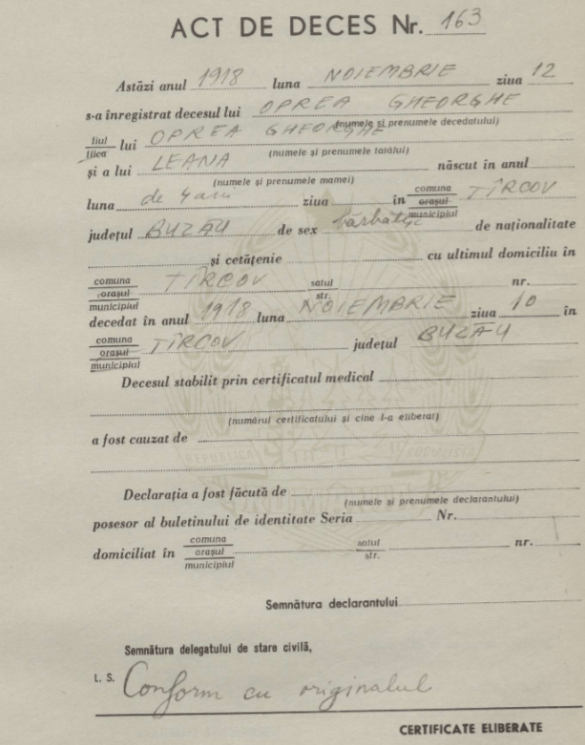 ACT DE DECES Nr. 163
Astăzi anul 1918 luna NOIEMBRIE ziua 12
s-a înregistrat decesul lui OPREA GHEORGHE
(numele și prenumele decedatului)
fiul
fiica lui OPREA GHEORGHE
(numele și prenumele tatălui)
și a lui LEANA născut în anul
(numele și prenumele mamei)
luna de 4 ani ziua în comuna TÎRCOV
orașul
municipiul
județul BUZĂU de sex bărbătesc de naționalitate
și cetățenie cu ultimul domiciliu în
comuna TÎRCOV satul nr.
orașul str.
municipiul
decedat în anul 1918 luna NOIEMBRIE ziua 10 în
comuna TÎRCOV județul BUZĂU
orașul
municipiul
Decesul stabilit prin certificatul medical
(numărul certificatului și cine l-a eliberat)
a fost cauzat de
REPUBLICA SOCIALISTĂ
Declarația a fost făcută de
(numele și prenumele declarantului)
posesor al buletinului de identitate Seria Nr.
domiciliat în comuna satul nr.
orașul str.
municipiul
Semnătura declarantului
Semnătura delegatului de stare civilă,
L. S. Conform cu originalul
CERTIFICATE ELIBERATE